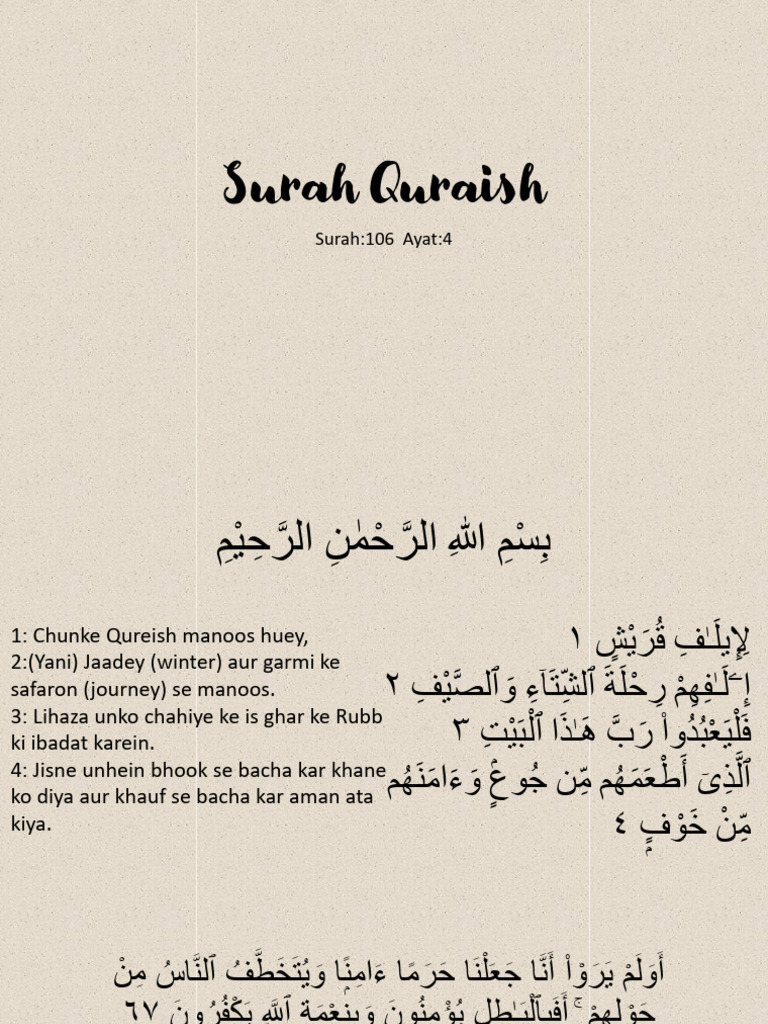 Surah Quraish
Surah:106 Ayat:4
بِسْمِ اللهِ الرَّحْمٰنِ الرَّحِيْمِ
1: Chunke Qureish manoos huey,
2:(Yani) Jaadey (winter) aur garmi ke
safaron (journey) se manoos.
3: Lihaza unko chahiye ke is ghar ke Rubb
ki ibadat karein.
4: Jisne unhein bhook se bacha kar khane
ko diya aur khauf se bacha kar aman ata
kiya.
لِإِيلَـٰفِ قُرَيْشٍ ١
إِۦلَـٰفِهِمْ رِحْلَةَ ٱلشِّتَآءِ وَٱلصَّيْفِ ٢
فَلْيَعْبُدُوا۟ رَبَّ هَـٰذَا ٱلْبَيْتِ ٣
ٱلَّذِىٓ أَطْعَمَهُم مِّن جُوعٍۢ وَءَامَنَهُم
مِّنْ خَوْفٍۭ ٤
أَوَلَمْ يَرَوْا۟ أَنَّا جَعَلْنَا حَرَمًا ءَامِنًۭا وَيُتَخَطَّفُ ٱلنَّاسُ مِنْ
حَوْلِهِمْ ۚ أَفَبِٱلْبَـٰطِلِ يُؤْمِنُونَ وَبِنِعْمَةِ ٱللَّهِ يَكْفُرُونَ ٦٧